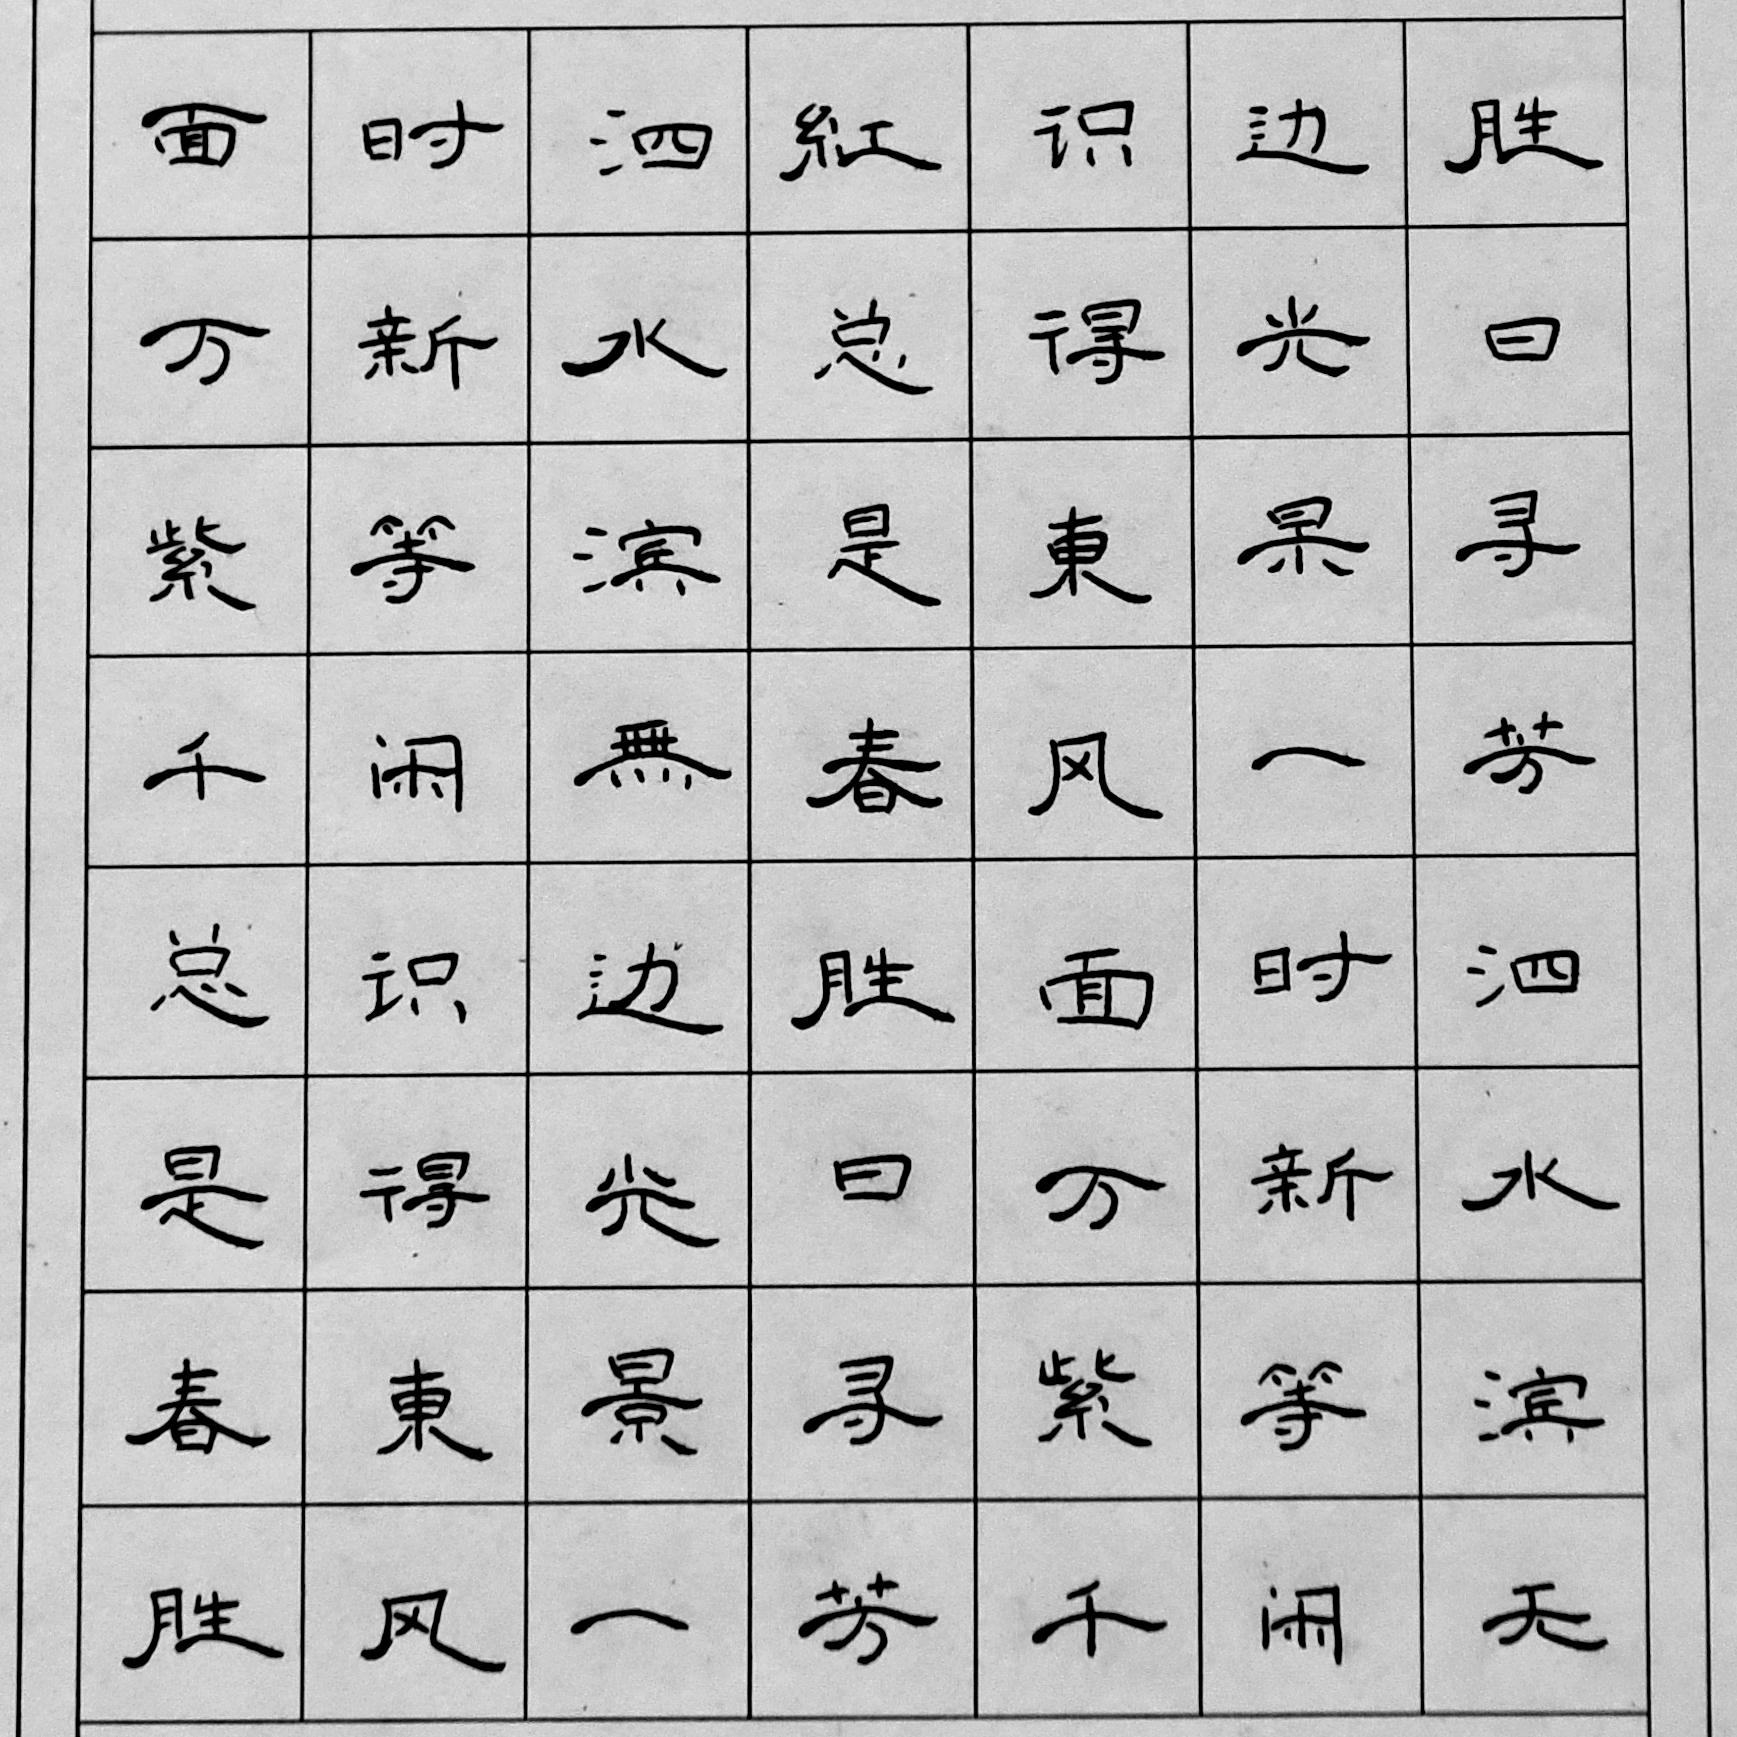 胜日寻芳泗水滨无
边光景一时新等闲
识得東风面万紫千
紅总是春胜日寻芳
泗水滨無边光景一
时新等闲识得東风
面万紫千总是春胜